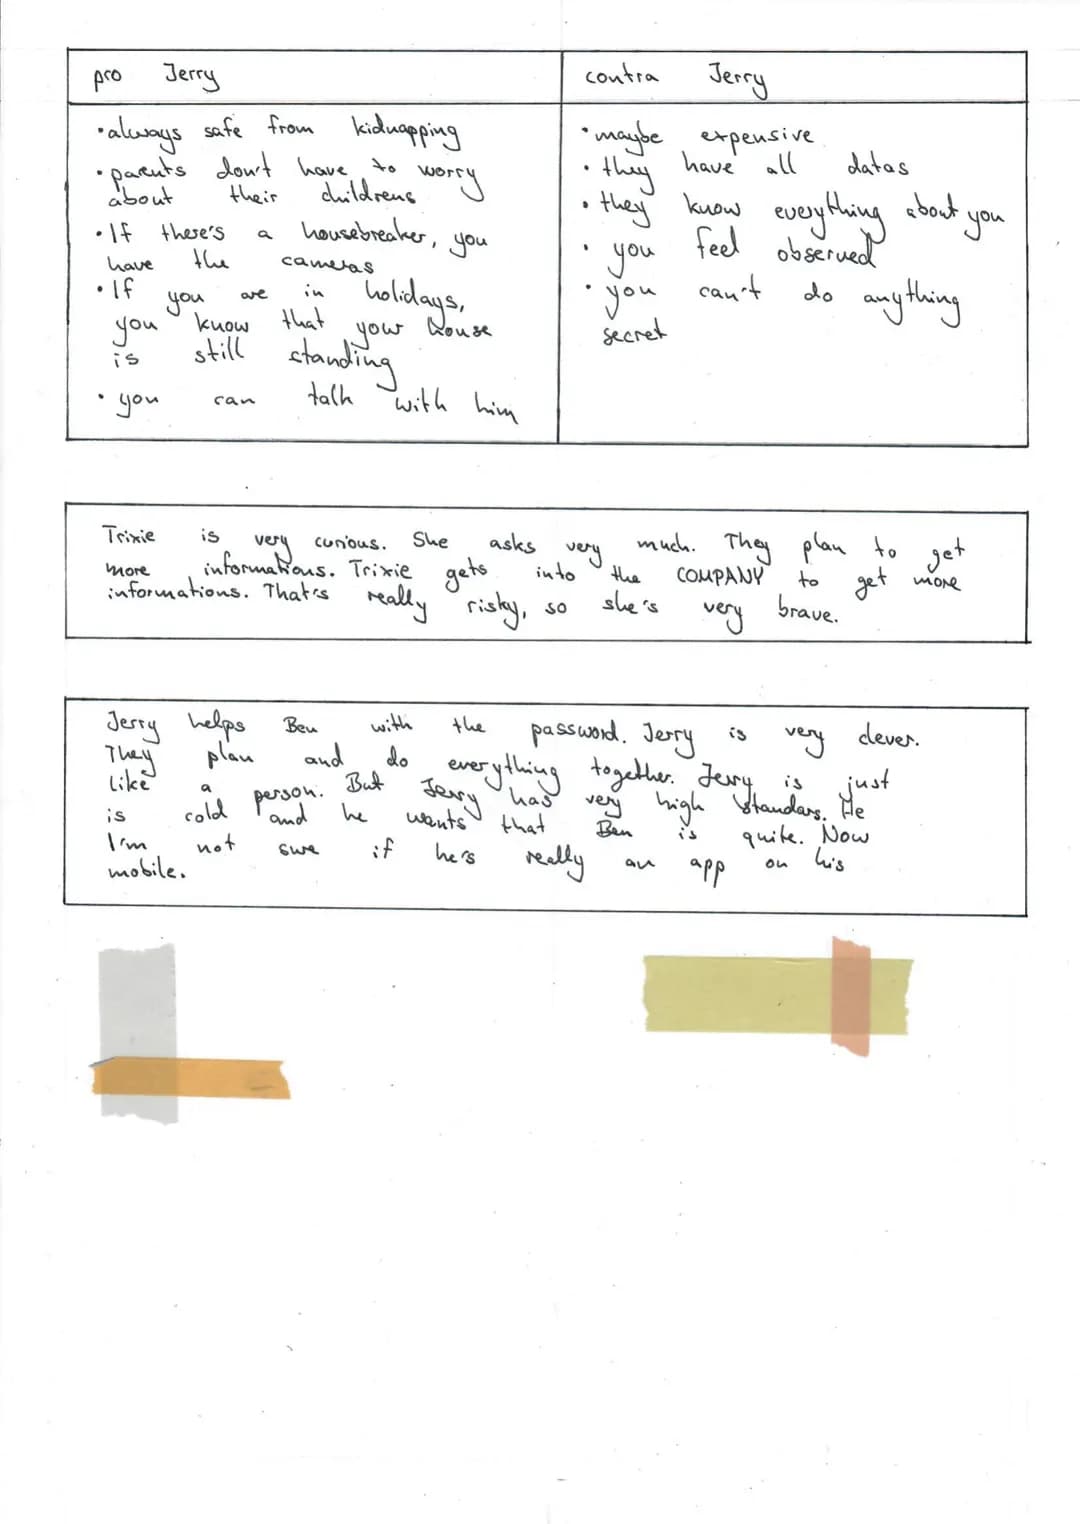 pro Jerry
contra Jerry
• always safe from kidnapping
• parents don't have to worry
about their childrens
• If there's a housebreaker, you
have the cameras
• If you are in holidays,
you know that your house
is still standing
• you can talk with him
• maybe expensive
• they have all datas
• they know everything about you
• you feel observed
• you can't do anything
secret
Trixie is very curious. She asks very much. They plan to get
more informations. Trixie gets into the COMPANY to get more
informations. That's really risky, so she's very brave.
Jerry helps Ben with the password. Jerry is very clever.
They plan and do everything together. Jerry is just
like a person. But Jerry has very high standars. He
is cold and he wants that Ben is quite. Now
I'm not sure if he's really an app on his
mobile.